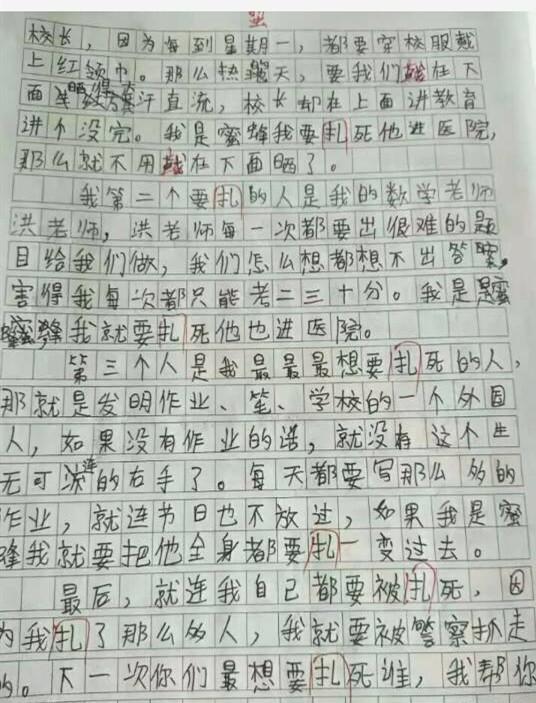 校长，因为每到星期一，都要穿校服戴
上红领巾。那么热天，要我们站在下
面晒得汗直流，校长却在上面讲教育
讲个没完。我是蜜蜂我要扎死他进医院，
那么就不用站在下面晒了。
我第二个要扎的人是我的数学老师
洪老师，洪老师每一次都要出很难的题
目给我们做，我们怎么想都想不出答案，
害得我每次都只能考二三十分。我是蜜
蜜蜂我就要扎死他也进医院。
第三个人是我最最最想要扎死的人，
那就是发明作业、笔、学校的一个外国
人，如果没有作业的话，就没有这个生
无可连的右手了。每天都要写那么多的
作业，就连节日也不放过，如果我是蜜
蜂我就要把他全身都要扎一变过去。
最后，就连我自己都要被扎死，因
为我扎了那么多人，我就要被警察抓走
的。下一次你们最想要扎死谁，我帮你